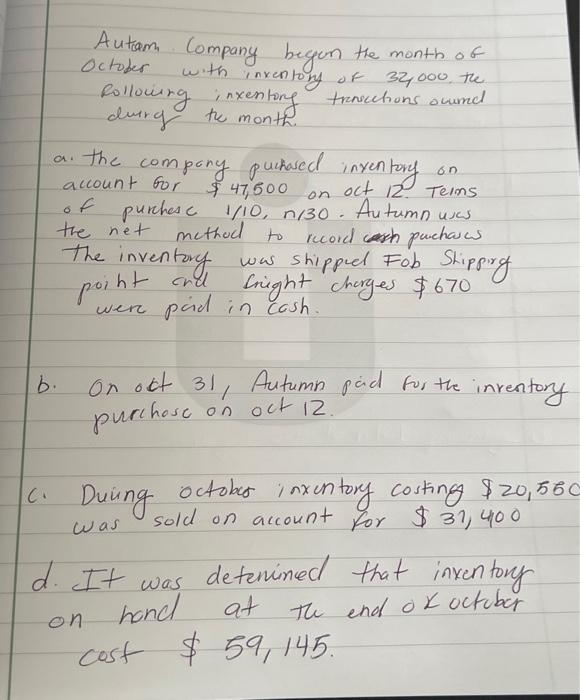 Autam Company begun the month of
October with inventory of 32,000. the
following inventory transections ouured
durg the month.
a. the company puchased inventory on
account for $ 47,500 on oct 12. Tems
of purchase 1/10, n/30. Autumn uses
the net method to record cash puchases
The inventory was shipped Fob Shipping
point and fright charges $ 670
were paid in cash.
b. On oct 31, Autumn paid for the inventory
purchase on oct 12.
c. Duing october inventory costing $ 20,550
was sold on account for $ 31,400
d. It was detemined that inventory
on hand at the end of october
cost $ 59,145.